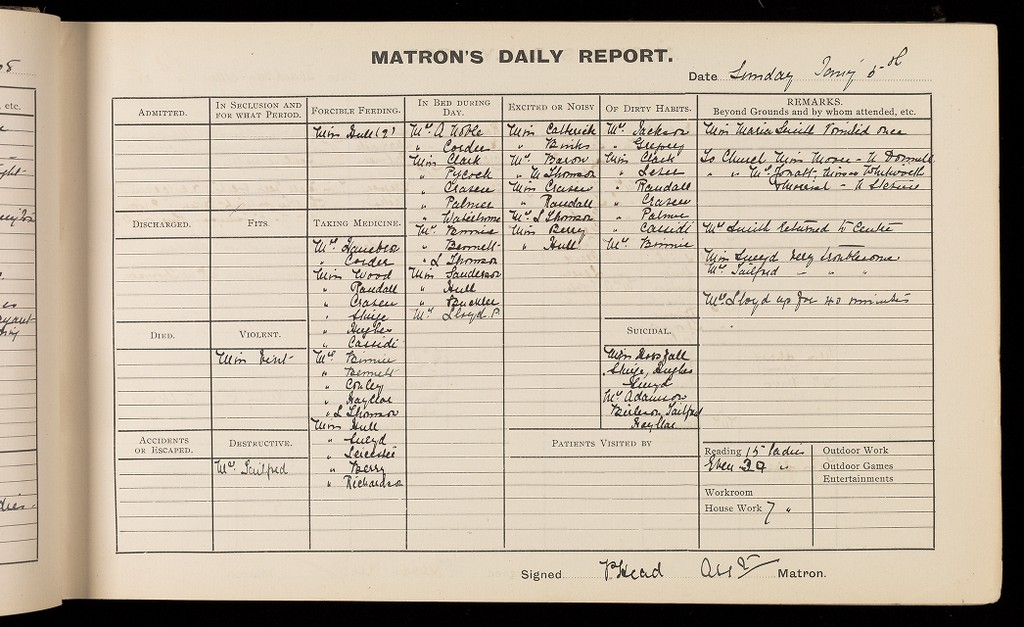 MATRON'S DAILY REPORT.
Date Sunday Jany 5th
ADMITTED.
IN SECLUSION AND FOR WHAT PERIOD.
FORCIBLE FEEDING.
Miss Hull (2)
IN BED DURING DAY.
Mrs. A Noble
" Corder
Miss Clark
" Pycock
" Craser
" Palmer
" Waterhouse
Mrs. Binnie
" Bennett
" L Thomson
Miss Sanderson
" Hull
" Buckler
Mrs Lloyd. P
EXCITED OR NOISY
Miss Catterick
" Binks
Mrs. Baron
" M Thomson
Miss Craser
" Randall
Mrs. L Thomson
Miss Berry
" Hull
OF DIRTY HABITS.
Mrs. Jackson
" Gregory
Miss Clark
" Lesen
" Randall
" Craser
" Palmer
" Cassidi
Mrs. Binnie
REMARKS.
Beyond Grounds and by whom attended, etc.
Miss Maria Smith Vomited once
To Church Miss Moore - N
" " Mrs
Mrs Smith returned to Centre
Miss Sneyd Very troublesome
Mrs. Tailford " " "
Mrs Lloyd up for 40 minutes
DISCHARGED.
FITS.
TAKING MEDICINE.
Mrs.
" Corder
Miss Wood
" Randall
" Craser
" Skige
" Hughes
" Cassidi
Mrs. Binnie
" Bennett
" Conley
" Hayllar
" L Thomson
Miss Hull
" Sneyd
" Leicester
" Berry
" Richardson
DIED.
VIOLENT.
Miss Kent
SUICIDAL.
Miss Horsfall
" Skige, Hughes
Sneyd
Mrs. Adamson
Tailford
Hayllar
ACCIDENTS OR ESCAPED.
DESTRUCTIVE.
Mrs. Tailford
PATIENTS VISITED BY
Reading 15 ladies
Even 39 "
Workroom
House Work 7 "
Outdoor Work
Outdoor Games
Entertainments
Signed P Head Asst Matron.